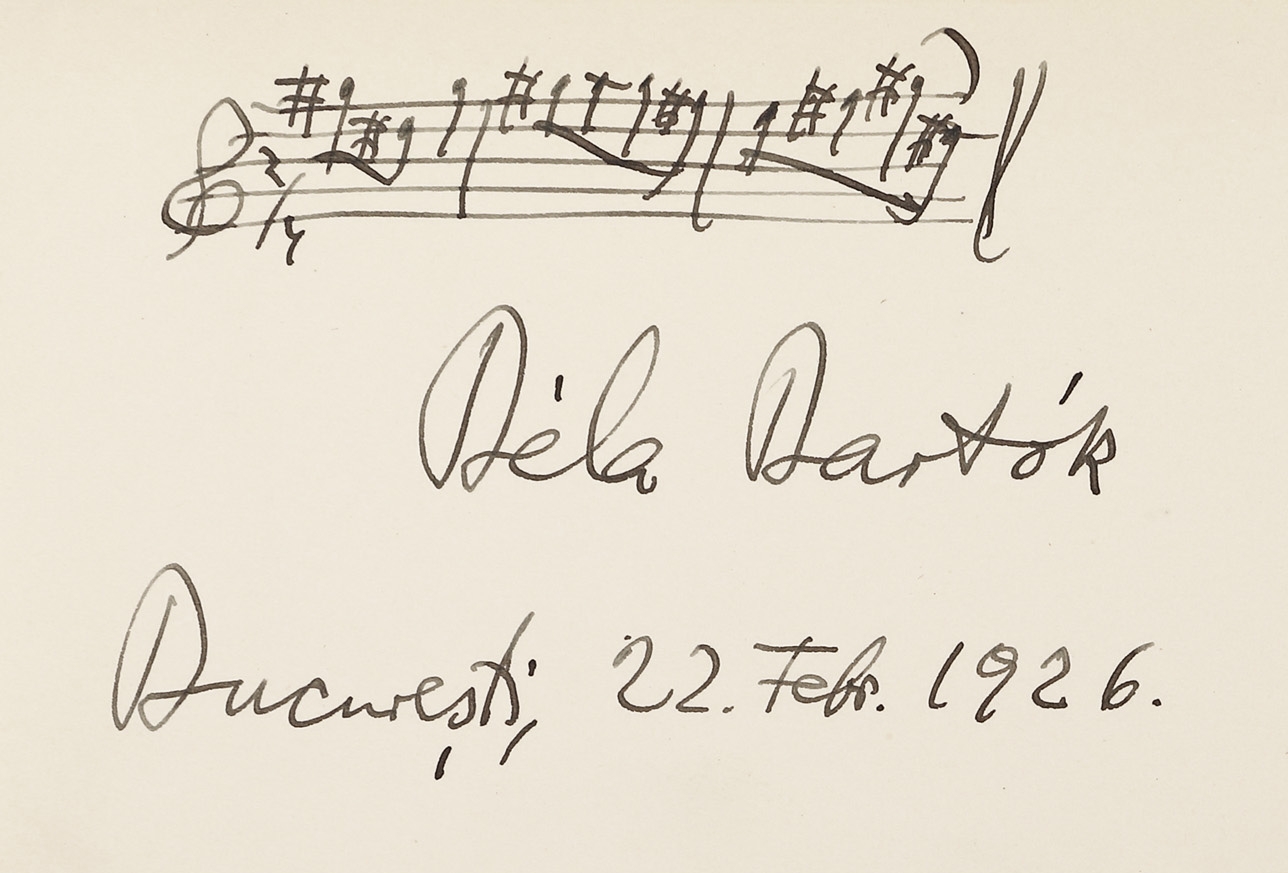 2/4
Béla Bartók
Bucureşti, 22. Febr. 1926.